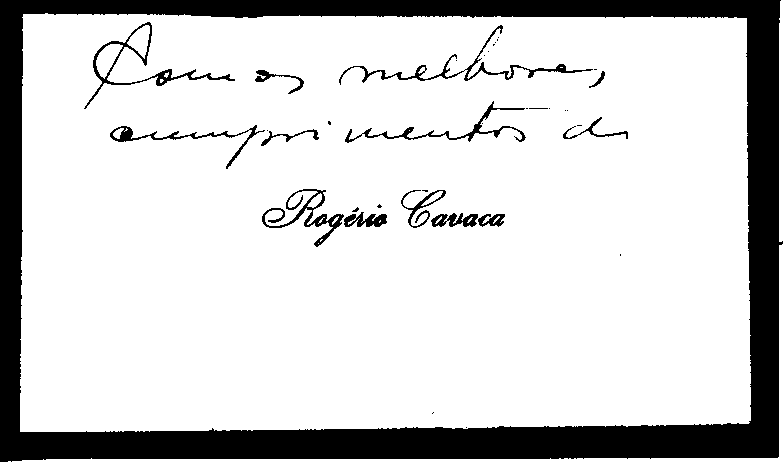 Com os melhores
cumprimentos de
Rogério Cavaca